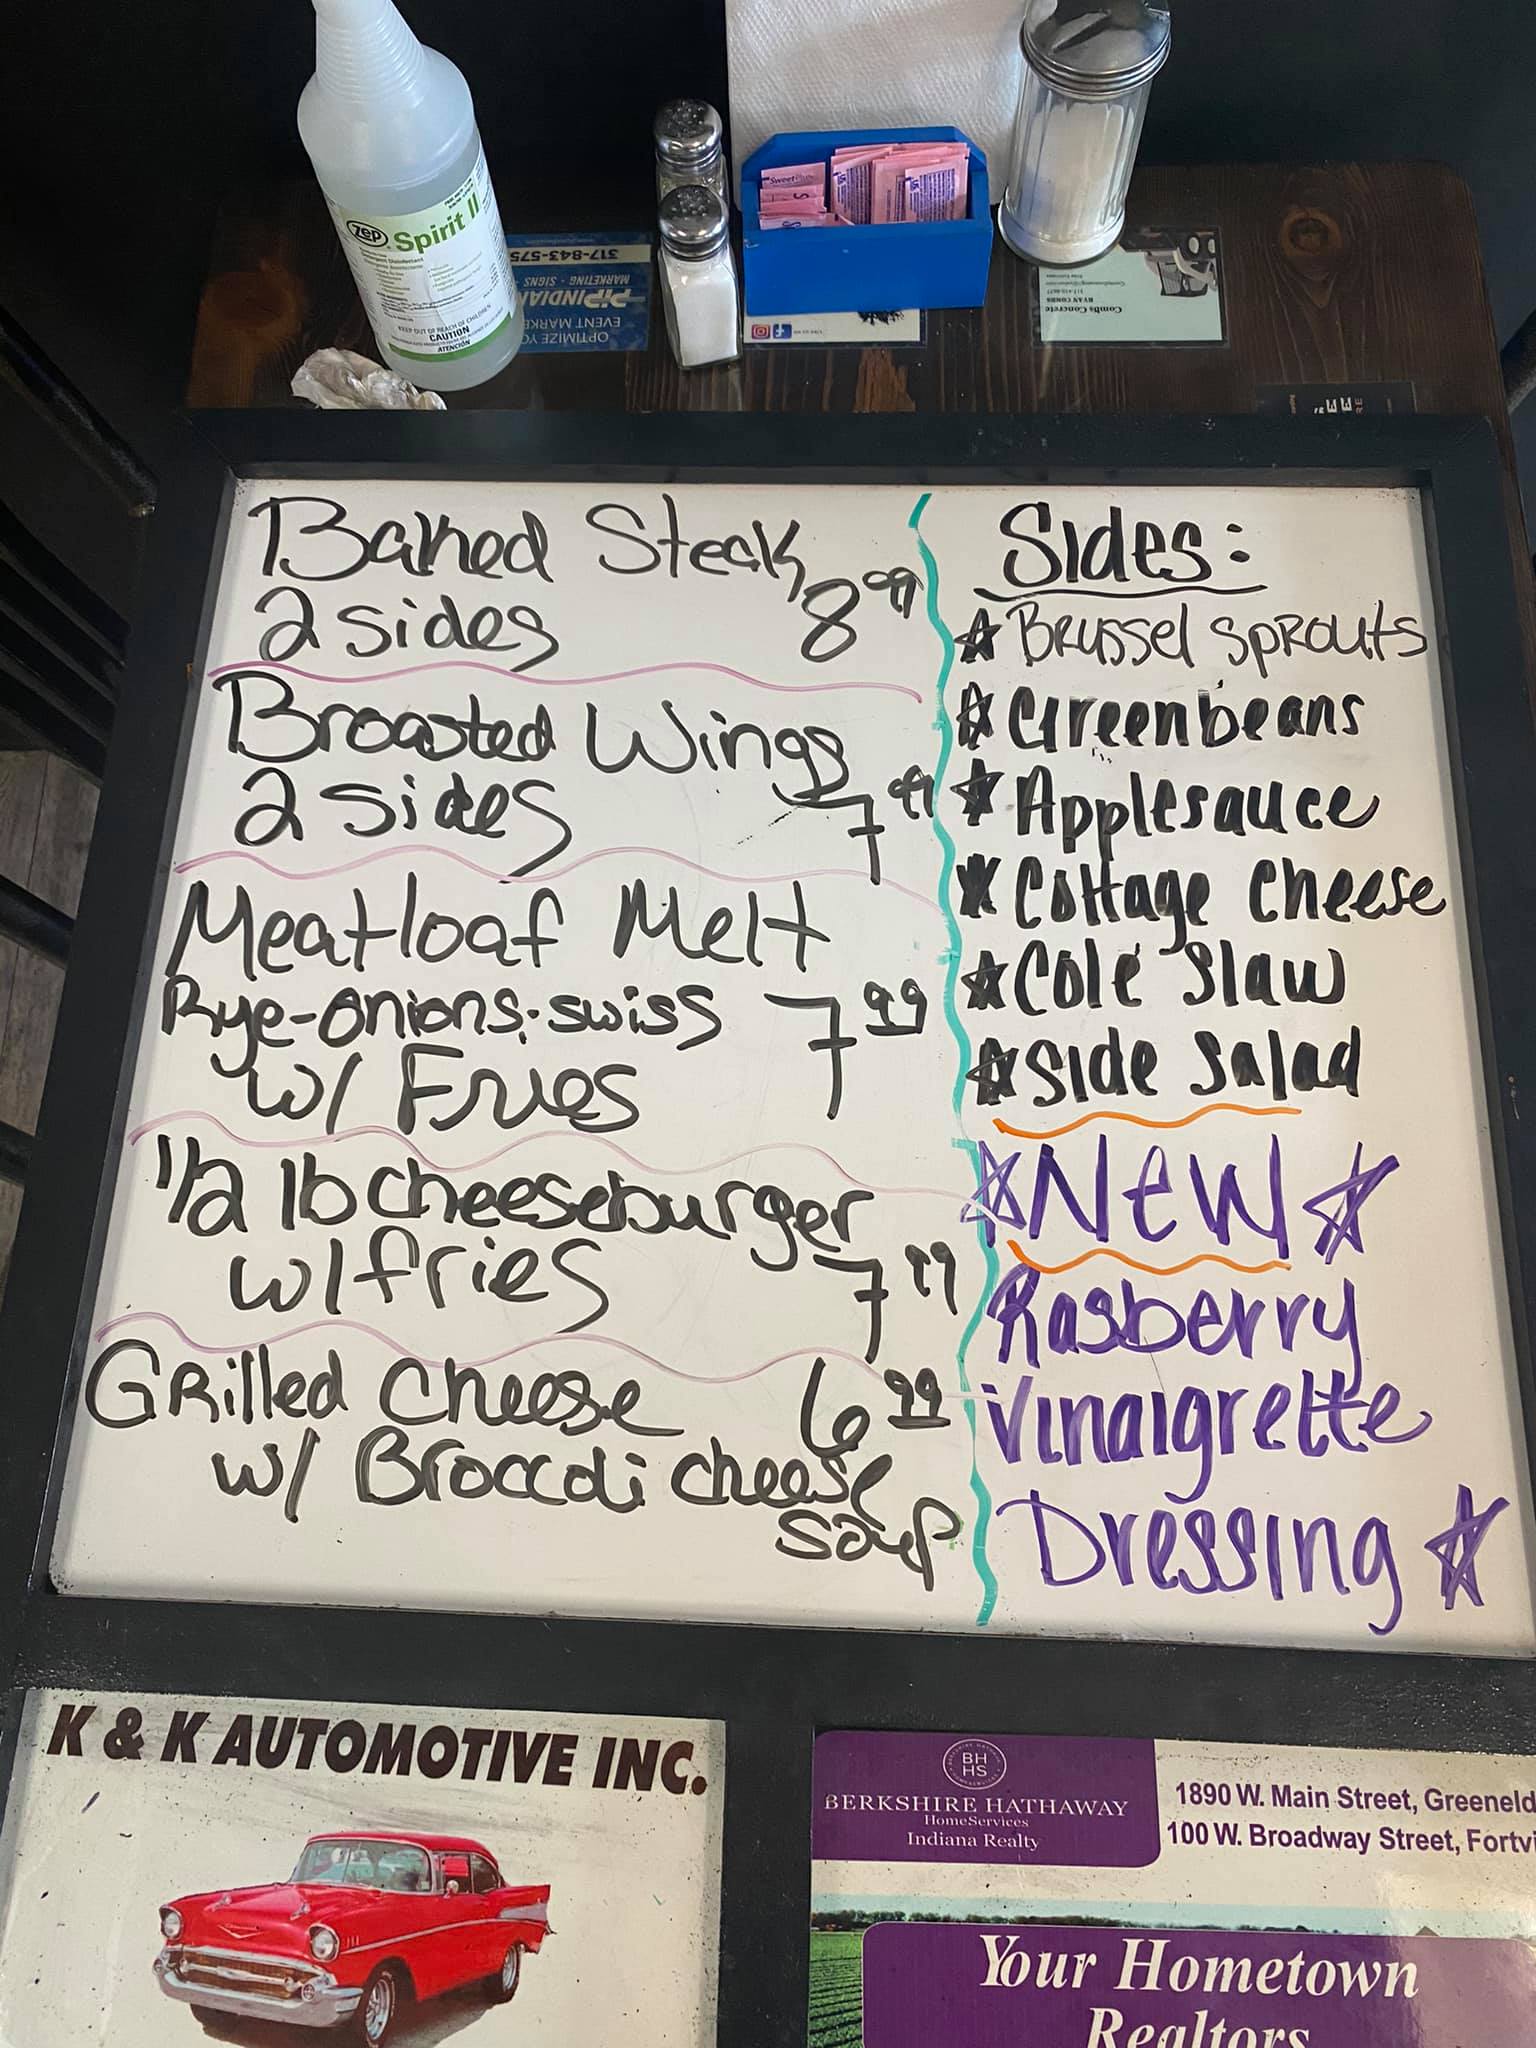 zep Spirit II
KEEP OUT OF REACH OF CHILDREN
CAUTION
ATENCIÓN
317-843-575
MARKETING · SIGNS
PIP INDIAN
EVENT MARKE
OPTIMIZE YO
Combs Concrete
RYAN COMBS
Baked Steak
2 sides 8 99
Broasted Wings
2 sides 7 99
Meatloaf Melt
Rye-onions-swiss 7 99
w/ Fries
1/2 lb cheeseburger
w/ fries 7 99
Grilled Cheese 6 99
w/ Broccoli cheese
soup
Sides:
Brussel Sprouts
Greenbeans
Applesauce
Cottage Cheese
Cole Slaw
Side Salad
New
Rasberry
Vinaigrette
Dressing
K & K AUTOMOTIVE INC.
BH
HS
BERKSHIRE HATHAWAY
HomeServices
Indiana Realty
1890 W. Main Street, Greeneld
100 W. Broadway Street, Fortvi
Your Hometown
Realtors